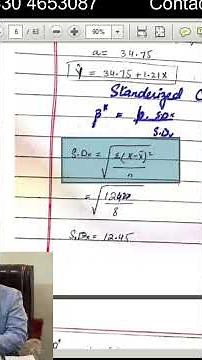 30 4653087 Contac
6 / 63
a = 34.75
Ŷ = 34.75 + 1.21X
Standerized C
β* = b. SDx
S.D
S.Dx = √Σ(x-x̄)²
n
= √
8
S.Dx = 12.45